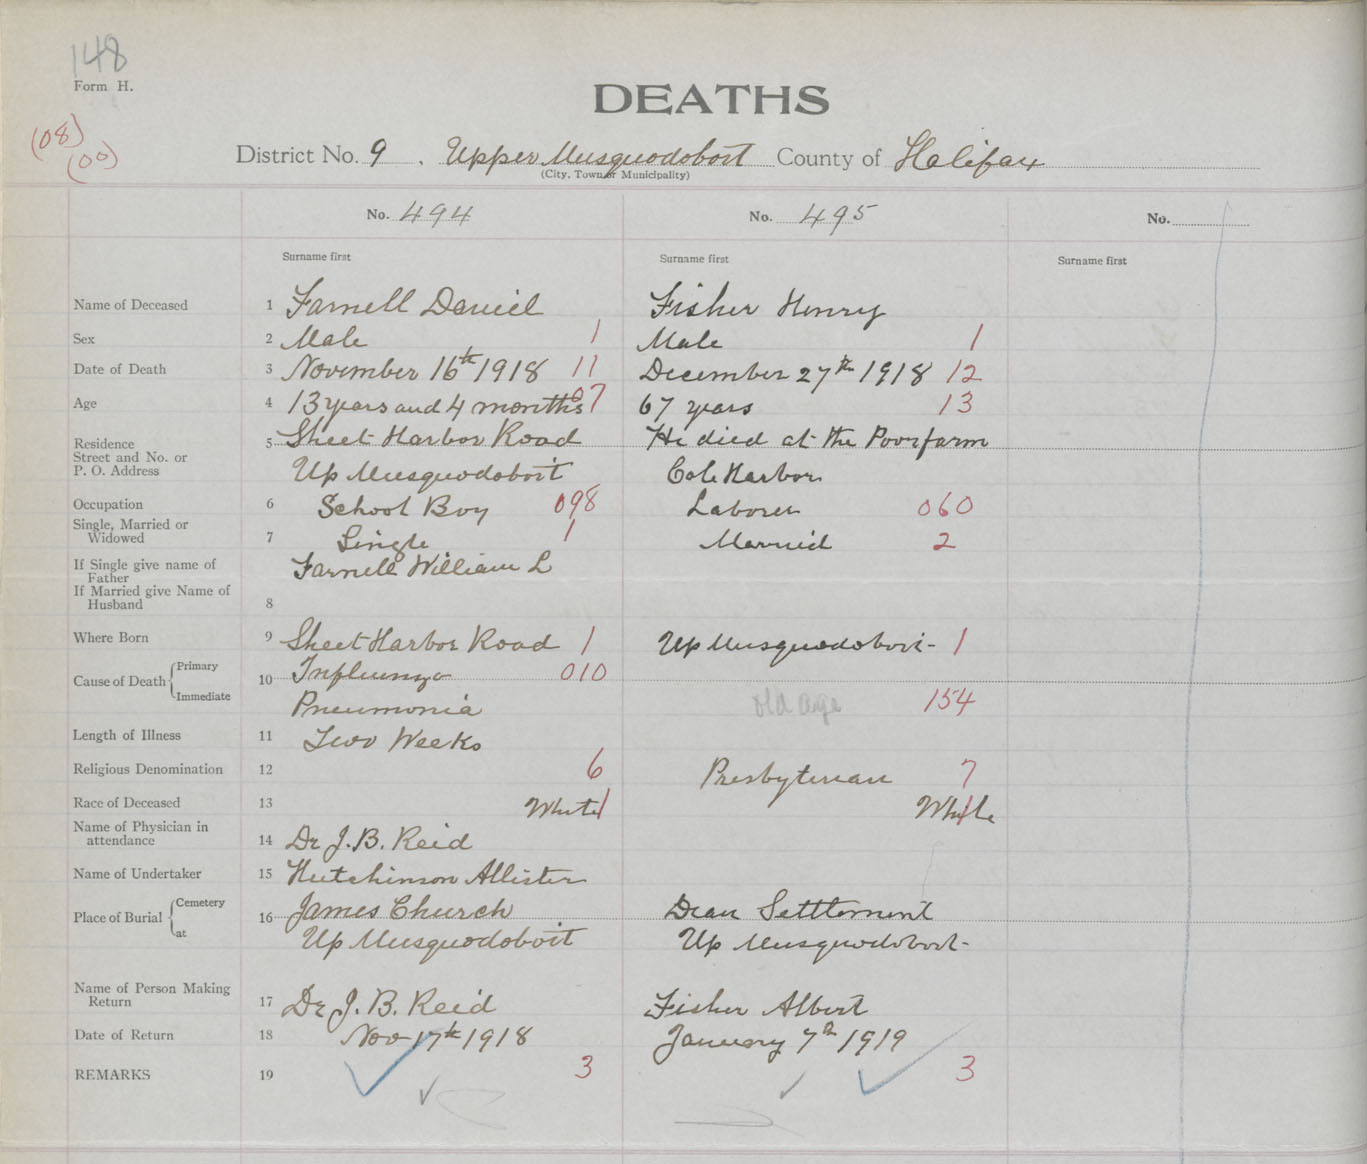 148
Form H.
DEATHS
(08)
(00)
District No. 9. Upper Musquodoboit County of Halifax
(City, Town or Municipality)
No. 494 No. 495 No.
Surname first Surname first Surname first
Name of Deceased 1 Farnell Daniel Fisher Henry
Sex 2 Male 1 Male 1
Date of Death 3 November 16th 1918 11 December 27th 1918 12
Age 4 13 years and 4 months 07 67 years 13
Residence 5 Sheet Harbor Road He died at the Poorfarm
Street and No. or
P. O. Address Up Musquodoboit Cole Harbor
Occupation 6 School Boy 098 Laborer 060
Single, Married or
Widowed 7 Single 1 Married 2
If Single give name of
Father Farnell William L
If Married give Name of
Husband 8
Where Born 9 Sheet Harbor Road 1 Up Musquodoboit- 1
Cause of Death Primary 10 Influenza 010
Immediate Pneumonia old age 154
Length of Illness 11 Two Weeks
Religious Denomination 12 6 Presbyterian 7
Race of Deceased 13 White 1 White 1
Name of Physician in
attendance 14 Dr J. B. Reid
Name of Undertaker 15 Hutchinson Allister
Place of Burial Cemetery 16 James Church Dean Settlement
at Up Musquodoboit Up Musquodoboit-
Name of Person Making
Return 17 Dr J. B. Reid Fisher Albert
Date of Return 18 Nov 17th 1918 January 7th 1919
REMARKS 19 3 3